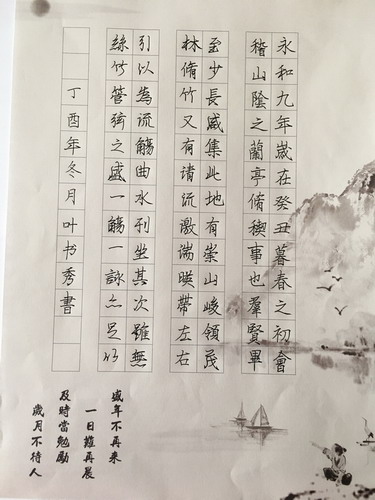 永和九年歲在癸丑暮春之初會
稽山陰之蘭亭脩稧事也羣賢畢
至少長咸集此地有崇山峻領茂
林脩竹又有清流激湍暎帶左右
引以為流觴曲水列坐其次雖無
絲竹管弦之盛一觴一詠亦足以
丁酉年冬月叶书秀書
盛年不再来
一日難再晨
及時當勉勵
歲月不待人